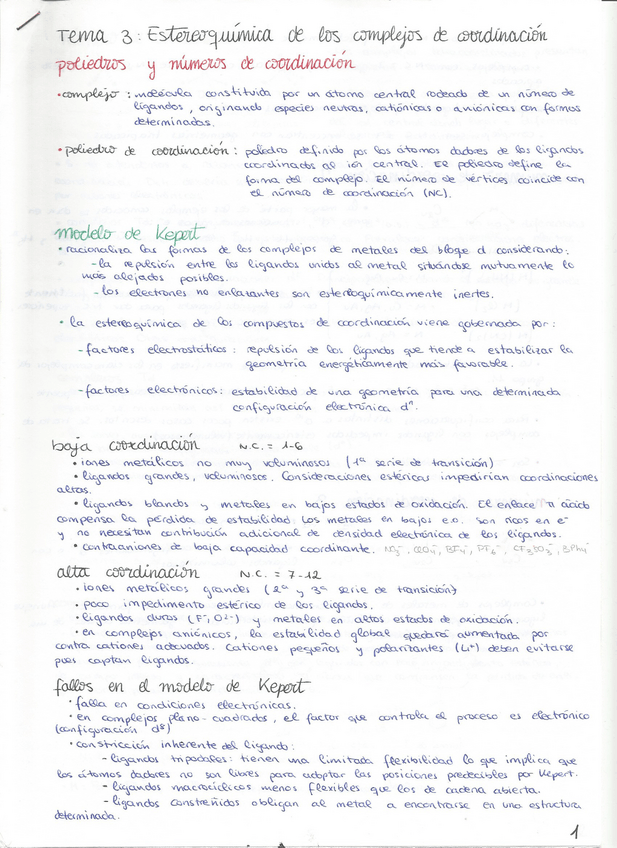 Tema 3: Estereoquímica de los complejos de coordinación
poliedros y números de coordinación
• complejo: molécula constituida por un átomo central rodeado de un número de
ligandos, originando especies neutras, catiónicas o aniónicas con formas
determinadas.
• poliedro de coordinación: poliedro definido por los átomos dadores de los ligandos
coordinados al ión central. El poliedro define la
forma del complejo. El número de vértices coincide con
el número de coordinación (NC).
modelo de Kepert
• racionaliza las formas de los complejos de metales del bloque d considerando:
- la repulsión entre los ligandos unidos al metal situándose mutuamente lo
más alejados posibles.
- los electrones no enlazantes son estereoquímicamente inertes.
• la estereoquímica de los compuestos de coordinación viene gobernada por:
- factores electrostáticos: repulsión de los ligandos que tiende a estabilizar la
geometría energéticamente más favorable.
- factores electrónicos: estabilidad de una geometría para una determinada
configuración electrónica dⁿ.
baja coordinación N.C. = 1-6
• iones metálicos no muy voluminosos (1ª serie de transición)
• ligandos grandes, voluminosos. Consideraciones estéricas impedirían coordinaciones
altas.
• ligandos blandos y metales en bajos estados de oxidación. El enlace π ácido
compensa la pérdida de estabilidad. Los metales en bajos e.o. son ricos en e⁻
y no necesitan contribución adicional de densidad electrónica de los ligandos.
• contraaniones de baja capacidad coordinante. NO₃⁻, ClO₄⁻, BF₄⁻, PF₆⁻, CF₃SO₃⁻, BPh₄⁻
alta coordinación N.C. = 7-12
• iones metálicos grandes (2ª y 3ª serie de transición)
• poco impedimento estérico de los ligandos.
• ligandos duros (F⁻, O²⁻) y metales en altos estados de oxidación.
• en complejos aniónicos, la estabilidad global quedará aumentada por
contra cationes adecuados. Cationes pequeños y polarizantes (Li⁺) deben evitarse
pues captan ligandos.
fallos en el modelo de Kepert
• falla en condiciones electrónicas.
• en complejos plano-cuadrados, el factor que controla el proceso es electrónico
(configuración d⁸)
• constricción inherente del ligando:
- ligandos tripodales: tienen una limitada flexibilidad lo que implica que
los átomos dadores no son libres para adoptar las posiciones predecibles por Kepert.
- ligandos macrocíclicos menos flexibles que los de cadena abierta.
- ligandos constreñidos obligan al metal a encontrarse en una estructura
determinada.
1